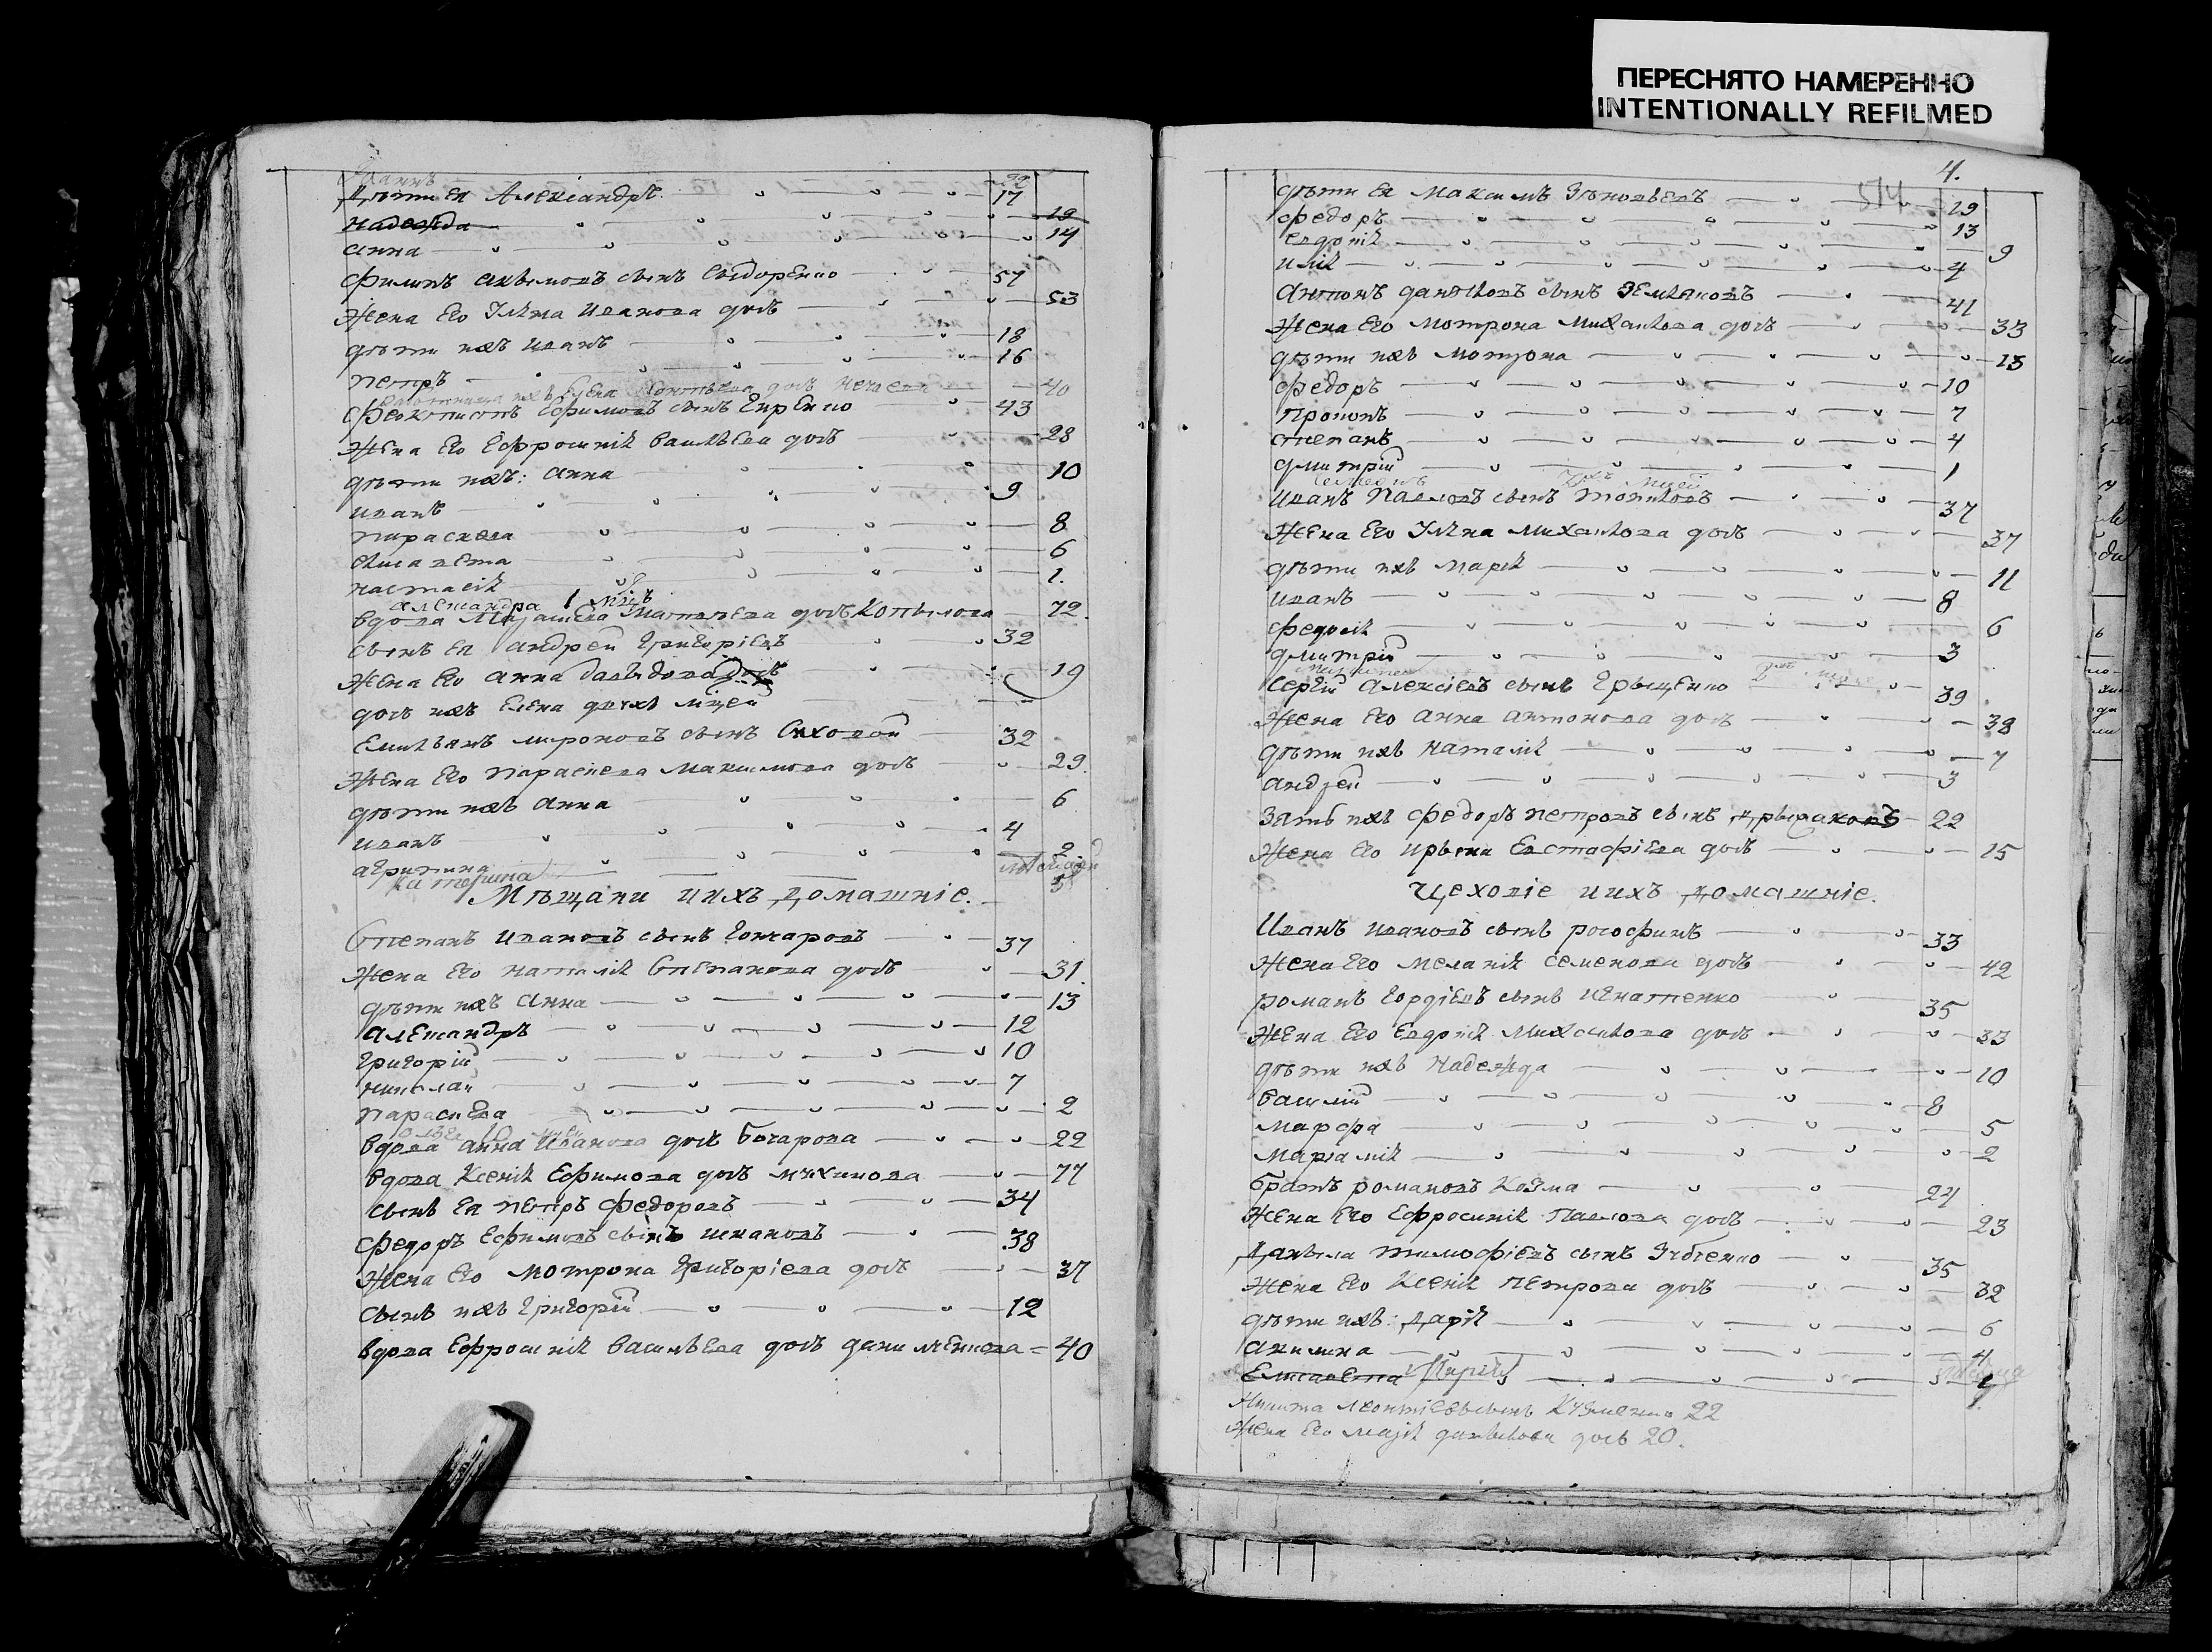 ПЕРЕСНЯТО НАМЕРЕННО
INTENTIONALLY REFILMED
Дѣти ея Александръ 17
Надежда 19
Анна 14
Филипъ Акимовъ сынъ Сидоренко 57
Жена его Ульяна Иванова дочь 53
дѣти ихъ Иванъ 18
Петръ 16
40
Ефимовъ сынъ 43
Жена его Ефросинія Василѣева дочь 28
дѣти ихъ: Анна 10
Иванъ 9
Параскева 8
Елисавета 6
Настасія 1.
Александра 1 мцъ
вдова Матвѣева дочь Копылова 72.
сынъ ея Андрей Григоріевъ 32
Жена его Анна Давыдова дочь 19
дочь ихъ Елена двухъ мцей
Емильянъ мироновъ сынъ Суховой 32
Жена его Параскева Максимова дочь 29.
дѣти ихъ Анна 6
Иванъ 4
агрипина 2
Катерина
Мѣщани иихъ домашніе.
Степанъ Ивановъ сынъ Гончаровъ 37
Жена его Наталія Степанова дочь 31.
дѣти ихъ Анна 13
Александръ 12
Григорій 10
Николай 7
Параскева 2
вдова Анна Иванова дочь Бочарова 22
вдова Ксенія Ефимова дочь 77
сынъ ея Петръ Федоровъ 34
Федоръ Ефимовъ сынъ 38
Жена его Мотрона Григоріева дочь 37
сынъ ихъ Григорій 12
вдова Ефросинія Василѣева дочь 40
4.
514
дѣти ея Максимъ Зѣновѣевъ 19
Федоръ 13
Евдокія 9
Илія 4
Антонъ даниловъ сынъ Земляновъ 41
Жена его Мотрона Михаилова дочь 33
дѣти ихъ Мотрона 13
Федоръ 10
Прокопъ 7
Степанъ 4
дмитрій 1
Семеонъ
Иванъ Павловъ сынъ 37
Жена его Ульяна Михаилова дочь 37
дѣти ихъ Марія 11
Иванъ 8
Федосія 6
дмитрій 3
Сергій Алексіевъ сынъ Грыценко 39
Жена его Анна Антонова дочь 38
дѣти ихъ Наталія 7
Андрей 3
Зять ихъ Федоръ Петровъ сынъ 22
Жена его Ирына Евстафіева дочь 15
Цеховіе иихъ домашніе.
Иванъ Ивановъ сынъ рогофинъ 33
Жена его Меланія Семенова дочь 42
романъ Гордіевъ сынъ Игнатенко 35
Жена его Евдокія Михаилова дочь 33
дѣти ихъ Надежда 10
Василій 8
Марфа 5
Маріамія 2
братъ романовъ Козма 24
Жена его Ефросинія Павлова дочь 23
Данила Тимофіевъ сынъ Зубенко 35
Жена его Ксенія Петрова дочь 32
дѣти ихъ: Дарія 6
Акилина 4
Елисавета
Никита Леонтіевъ сынъ Кузменко 22
Жена его Марія данилова дочь 20.